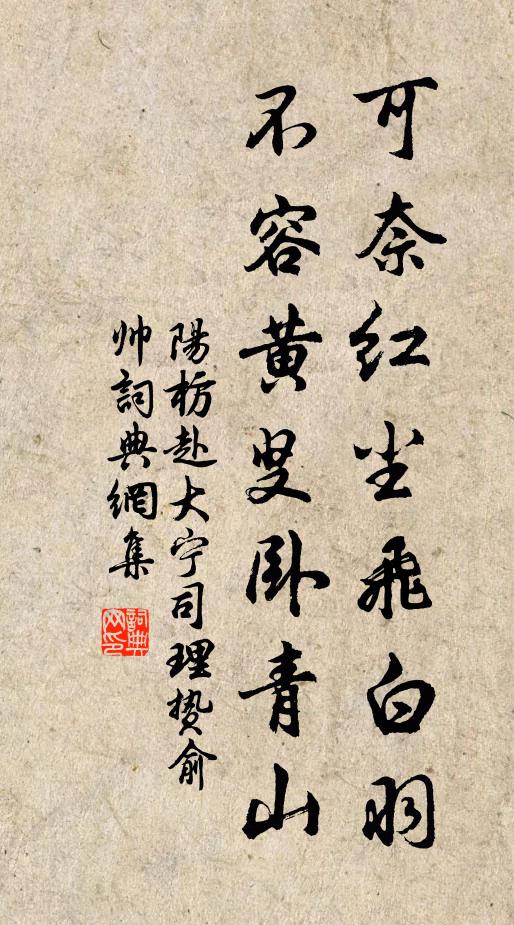 可奈红尘飞白羽
不容黄叟卧青山
陽枋赴大宁司理贽俞
帅詞典網集
詞典
网印